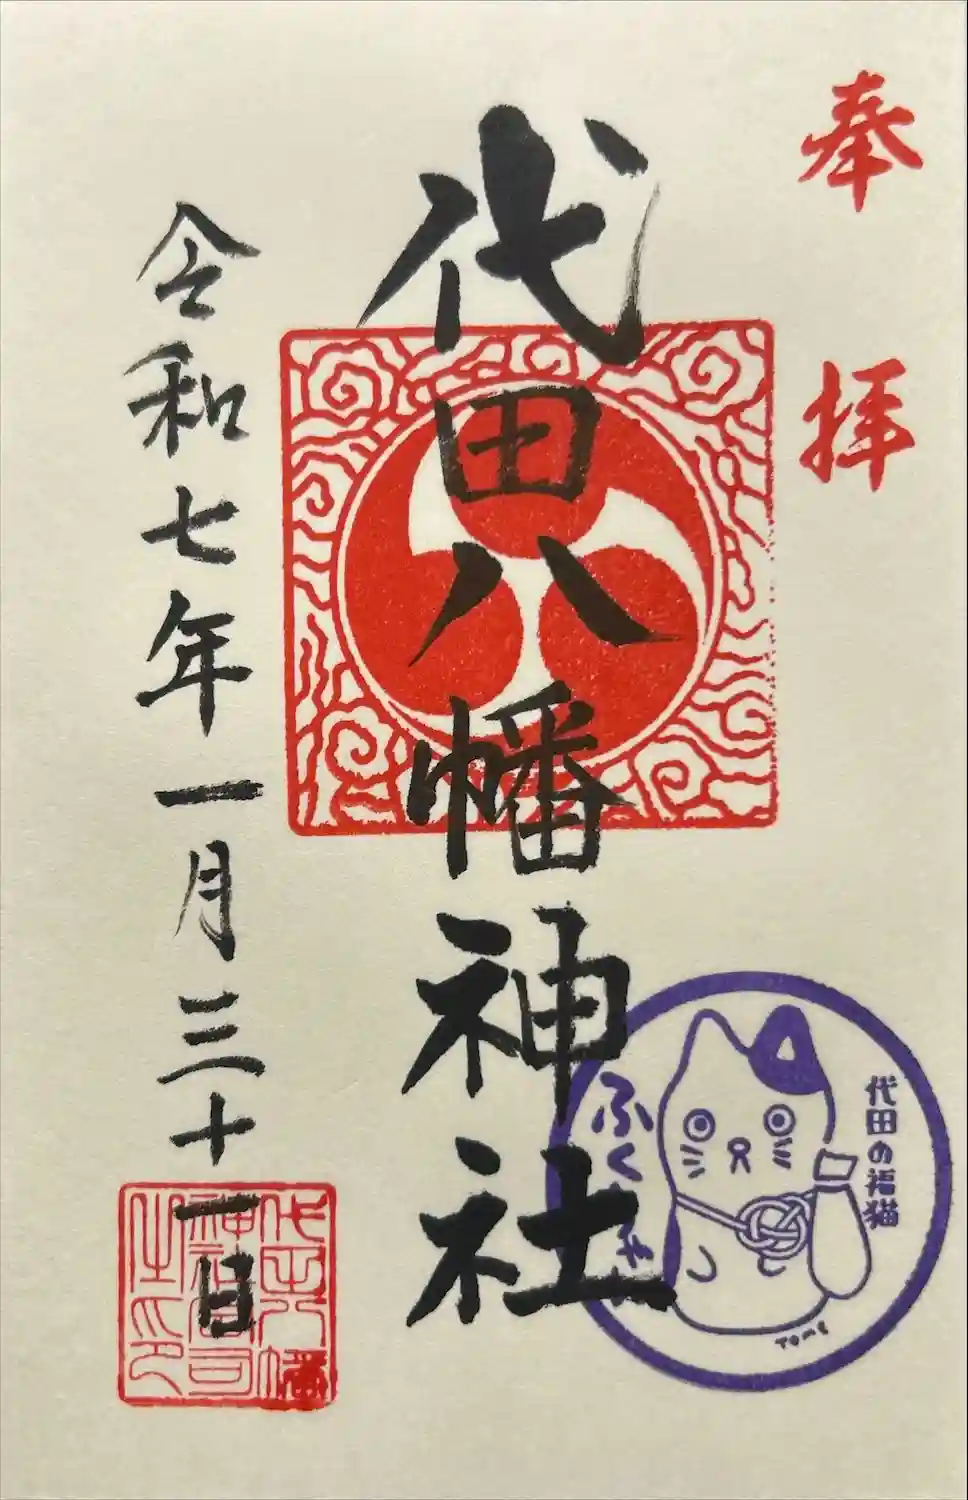 奉拝
代田八幡神社
令和七年一月三十一日
代田八幡
神社宮司
之印
ふく
代田の福猫
TOME